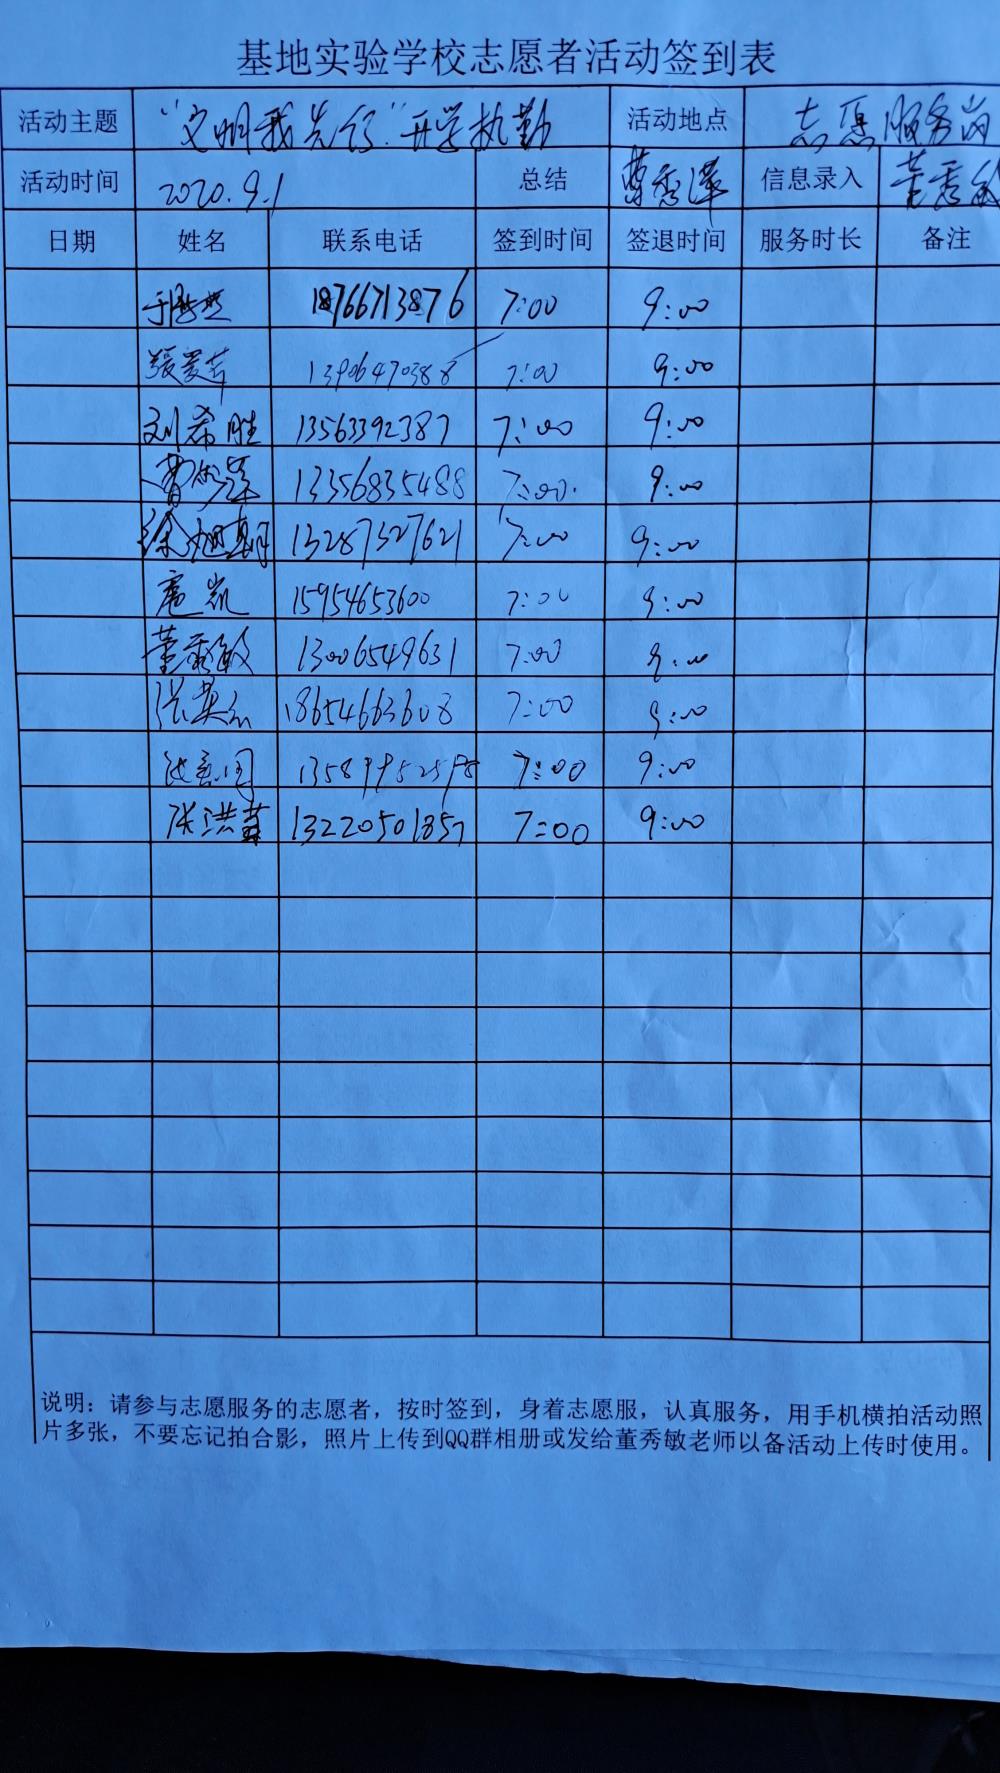 基地实验学校志愿者活动签到表
活动主题 "文明我先行"开学执勤 活动地点 志愿服务岗
活动时间 2020.9.1 总结 信息录入 董秀敏
日期 姓名 联系电话 签到时间 签退时间 服务时长 备注
18766713876 7:00 9:00
张爱苹 13906470388 7:00 9:00
刘希胜 13563392387 7:00 9:00
13356835488 7:00 9:00
徐 13287327621 7:00 9:00
庞凯 15954653600 7:00 9:00
董秀敏 13006549631 7:00 9:00
张英 18654663608 7:00 9:00
7:00 9:00
张洪 13220501857 7:00 9:00
说明：请参与志愿服务的志愿者，按时签到，身着志愿服，认真服务，用手机横拍活动照
片多张，不要忘记拍合影，照片上传到QQ群相册或发给董秀敏老师以备活动上传时使用。